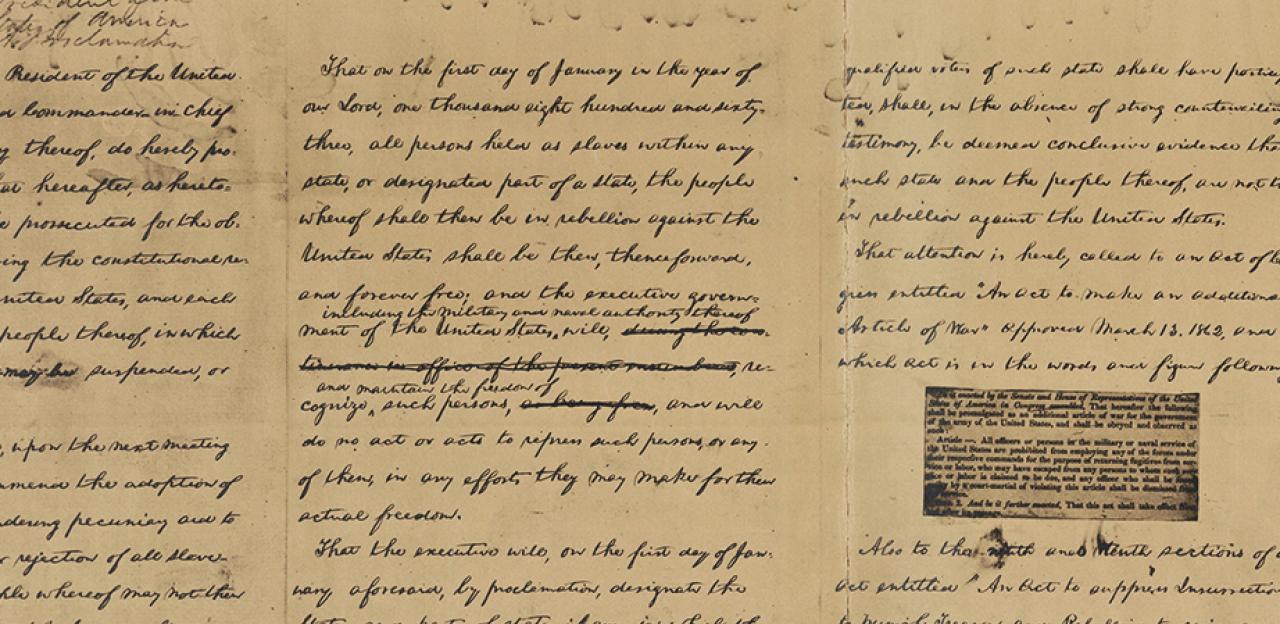 President of the United
Commander-in-Chief
thereof, do hereby pro-
hereafter, as hereto-
prosecuted for the ob-
the constitutional re-
United States, and each
people thereof, in which
suspended, or
upon the next meeting
the adoption of
pecuniary aid to
rejection of all slave
whereof may not then
That on the first day of January in the year of
our Lord, one thousand eight hundred and sixty-
three, all persons held as slaves within any
state, or designated part of a state, the people
whereof shall then be in rebellion against the
United States shall be then, thenceforward,
and forever free; and the executive govern-
including the military and naval authority thereof
ment of the United States, will, during the con-
tinuance in office of the present incumbents, re-
and maintain the freedom of
cognize, such persons, as being free, and will
do no act or acts to repress such persons, or any
of them, in any efforts they may make for their
actual freedom.
That the executive will, on the first day of Jan-
uary aforesaid, by proclamation, designate the
qualified voters of such state shall have
shall, in the absence of strong
testimony, be deemed conclusive evidence
such state and the people thereof, are not
in rebellion against the United States.
That attention is hereby called to an act of
entitled "An act to make an
Article of War" Approved March 13, 1862, and
which act is in the words and figure
enacted by the Senate and House of Representatives of the United
States of America in Congress assembled, That hereafter the following
shall be promulgated as an additional article of war for the government
of the army of the United States, and shall be obeyed and observed as
Article —. All officers or persons in the military or naval service of
the United States are prohibited from employing any of the forces under
their respective commands for the purpose of returning fugitives from
or labor, who may have escaped from any persons to whom such
or labor is claimed to be due, and any officer who shall be found
by a court-martial of violating this article shall be dismissed
And be it further enacted, That this act shall take effect
Also to the ninth and tenth sections of
act entitled "An Act to suppress